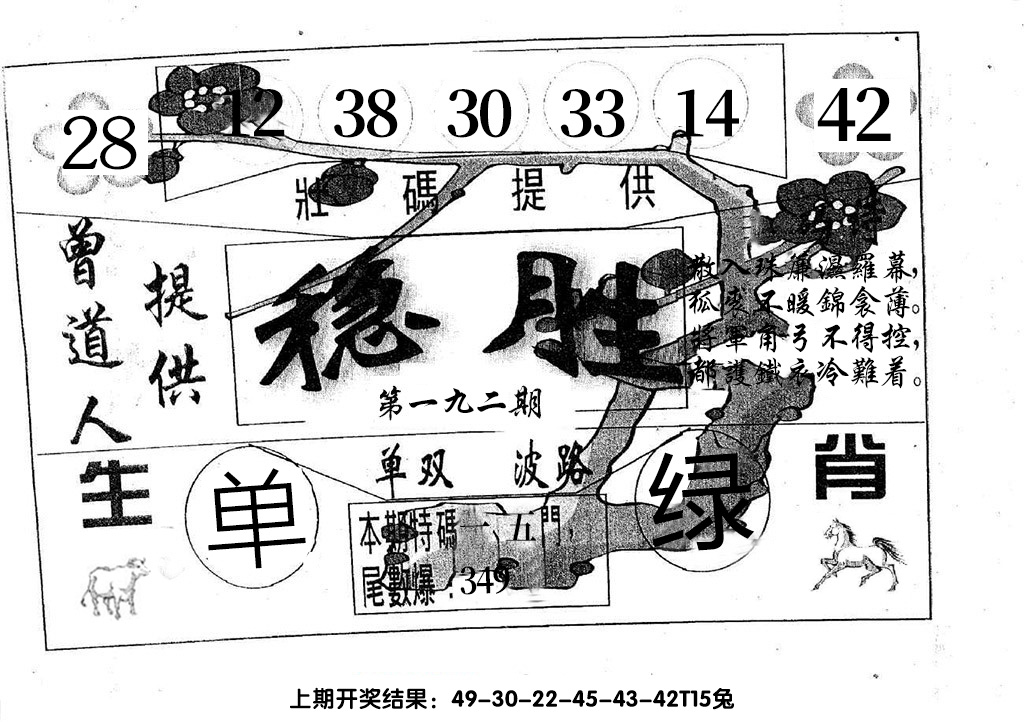 28 12 38 30 33 14 42
壯碼提供
曾道人
提供
稳胜
第一九二期
散入珠簾濕羅幕，
狐裘不暖錦衾薄。
將軍角弓不得控，
都護鐵衣冷難着。
单双 波路
生肖
单
绿
本期特碼一、五門，
尾數爆：349
上期开奖结果：49-30-22-45-43-42T15兔